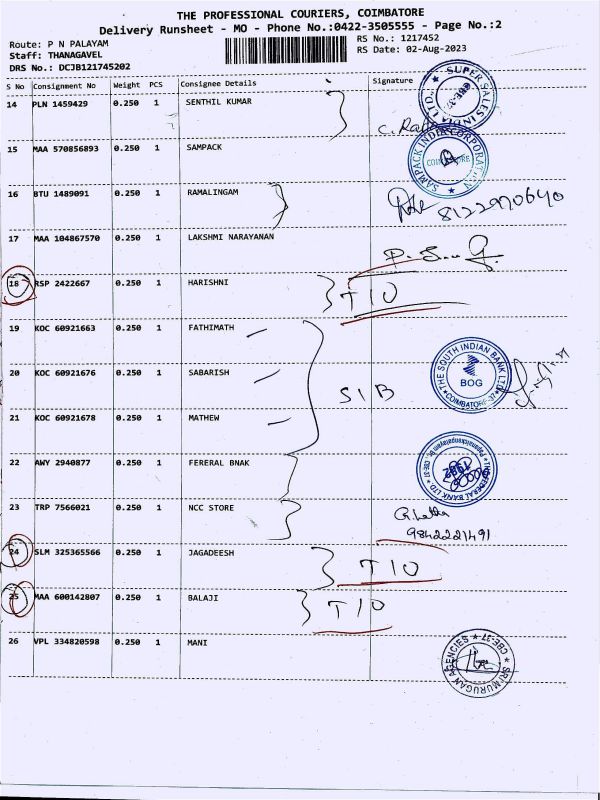 THE PROFESSIONAL COURIERS, COIMBATORE
Delivery Runsheet - MO - Phone No.:0422-3505555 - Page No.:2
Route: P N PALAYAM
RS No.: 1217452
Staff: THANAGAVEL
RS Date: 02-Aug-2023
DRS No.: DCJB121745202
S No Consignment No Weight PCS Consignee Details Signature
14 PLN 1459429 0.250 1 SENTHIL KUMAR
SUPER SALES INDIA LTD., CBE-37
15 MAA 570856893 0.250 1 SAMPACK
SAMPACK INDIA CORPORATION COIMBATORE
16 BTU 1489091 0.250 1 RAMALINGAM
8122970640
17 MAA 104867570 0.250 1 LAKSHMI NARAYANAN
18 RSP 2422667 0.250 1 HARISHNI T I O
19 KOC 60921663 0.250 1 FATHIMATH
20 KOC 60921676 0.250 1 SABARISH S I B
THE SOUTH INDIAN BANK LTD. BOG COIMBATORE-37
21 KOC 60921678 0.250 1 MATHEW
22 AWY 2940877 0.250 1 FERERAL BNAK
1992
23 TRP 7566021 0.250 1 NCC STORE
9842221491
24 SLM 325365566 0.250 1 JAGADEESH T I O
25 MAA 600142807 0.250 1 BALAJI T I O
26 VPL 334820598 0.250 1 MANI
SRI MURUGAN AGENCIES CBE-37